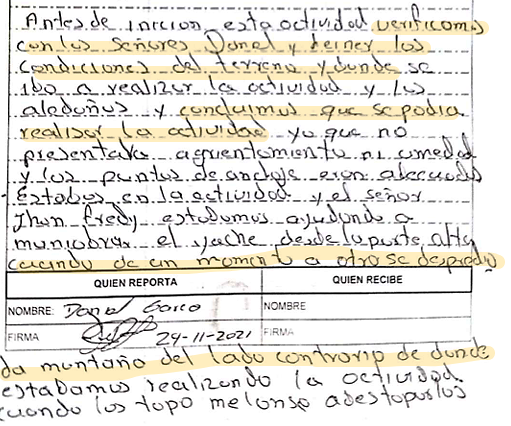 Antes de iniciar esta actividad verificamos
con los señores Donal y deiner los
condiciones del terreno y donde se
iba a realizar la actividad y los
aledaños y concluimos que se podia
realisar la actividad ya que no
presentava agrientamiento ni umedad
y los puntos de anclaje eran adecuados
Estabos en la actividad y el señor
Jhon fredy estabamos ayudando a
maniobrar el yache desde la parte alta
cuando de un momento a otro se despredio
QUIEN REPORTA QUIEN RECIBE
NOMBRE: Donal Garco NOMBRE
FIRMA 29-11-2021 FIRMA
da montaño del lado contrario de donde
estabamos realizando la actividad
cuando los tapo me lanse a destaparlos